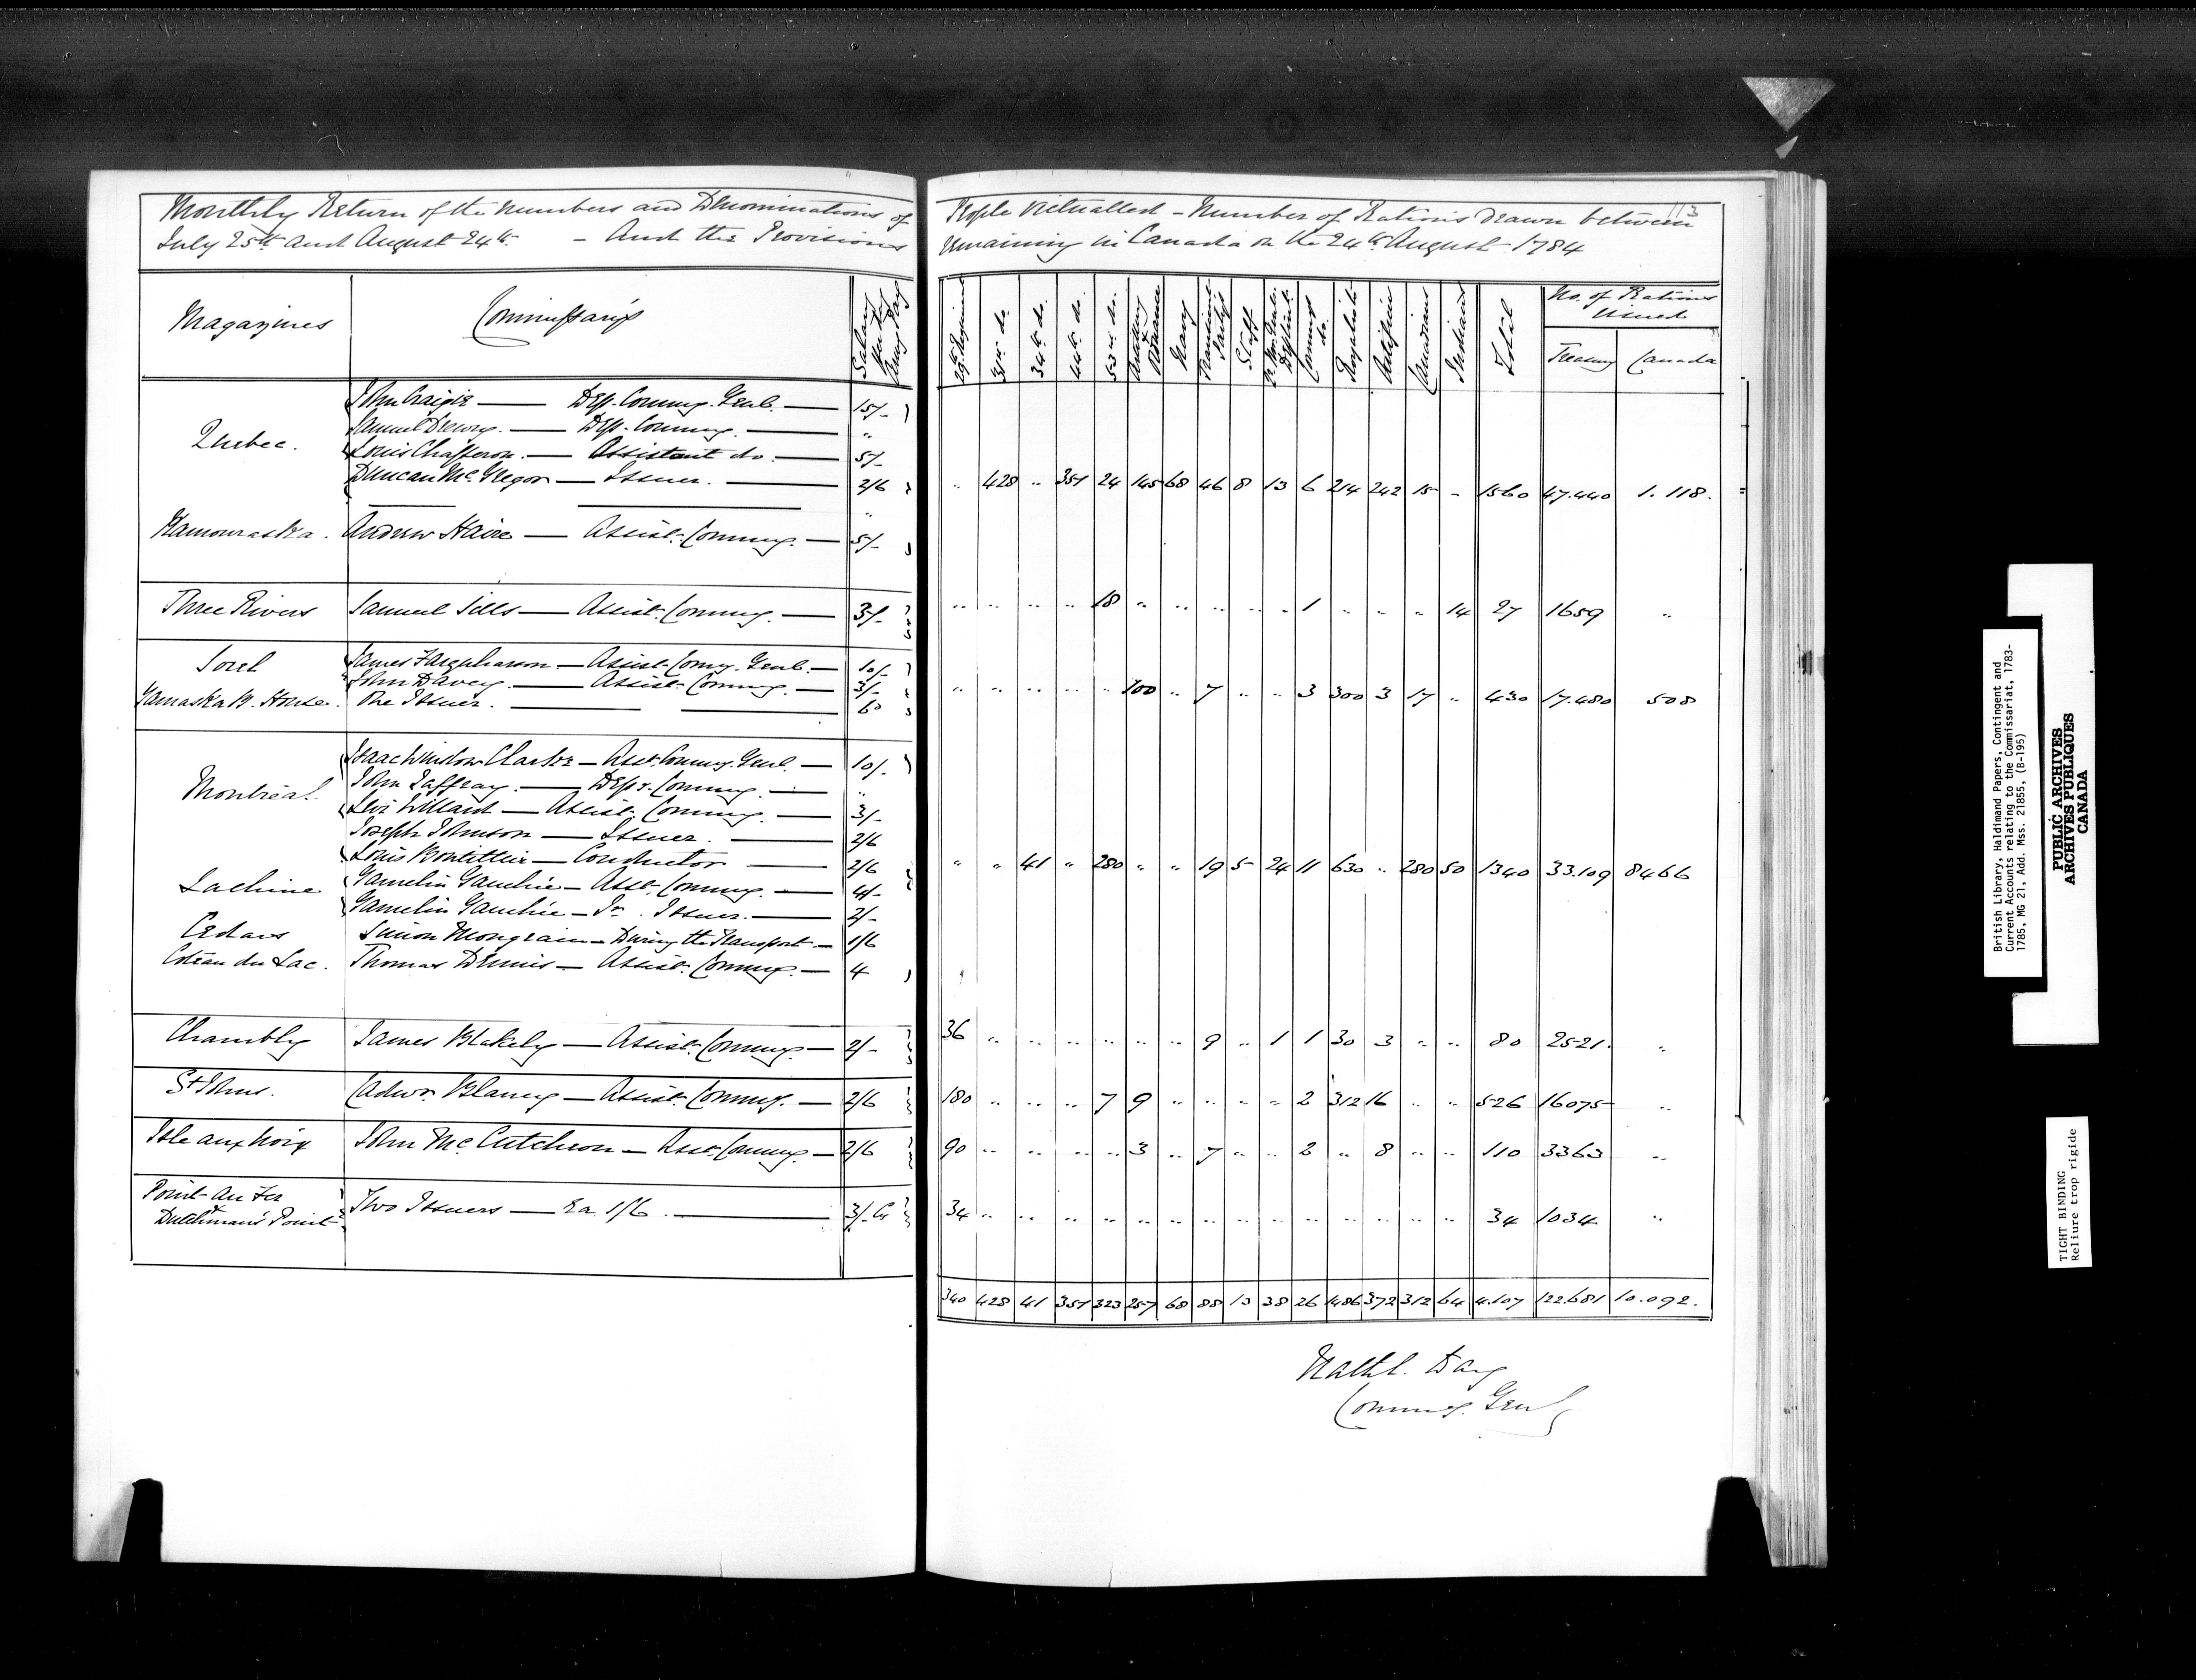 Monthly Return of the Numbers and Denominations of People Victualled - Number of Rations drawn between
July 25th and August 24th. - And the Provisions remaining in Canada on the 24th August 1784
113
Magazines | Commissarys | Salary | 29th Regiment | 31st do. | 34th do. | 44th do. | 53rd do. | Artillery & Ordnance | Navy | Transient Parties | Staff | Commy do. | Royalists | Artificers | Canadians | Indians | Total | No. of Rations Issued
Treasury | Canada
John Craigie — Dep. Commy. Genl. — 15/-
Samuel Drewry. — Dep. Commy. — "
Quebec. Louis Chafferon. — Assistant do. — 5/-
Duncan McGregor — Issuer. — 2/6 | " | 428 | " | 351 | 24 | 145 | 68 | 46 | 8 | 13 | 6 | 214 | 242 | 15 | - | 1560 | 47.440 | 1.118.
"
Kamouraska. Andrew Haire — Assist. Commy. — 5/-
Three Rivers Samuel Sills — Assist. Commy. — 3/- | " | " | " | " | 18 | " | " | " | " | " | 1 | " | " | " | 14 | 27 | 1659 | "
Sorel James Farquharson — Assist. Comy. Genl. — 10/-
John Davey. — Assist. Commy. — 3/- | " | " | " | " | " | 100 | " | 7 | " | " | 3 | 300 | 3 | 17 | " | 430 | 17.480 | 508
Yamaska B. House. One Issuer. — 6d
Isaac Winslow Clarke — Asst. Commy. Genl. — 10/-
Montreal John Laffray. — Depy. Commy. — "
Levi Willard — Assist. Commy. — 3/-
Joseph Johnson — Issuer. — 2/6
Louis Montillier — Conductor — 2/6 | " | " | 41 | " | 280 | " | " | 19 | 5 | 24 | 11 | 630 | " | 280 | 50 | 1340 | 33.109 | 8466
Lachine Gamelin Gauchie — Asst. Commy. — 4/-
Gamelin Gauchie — Jr. Issuer. — 2/-
Cedars Simon Mongrain — During the Transport — 1/6
Coteau du Lac. Thomas Dennis — Assist. Commy. — 4
Chambly James Blakely — Assist. Commy. — 2/- | 36 | " | " | " | " | " | " | 9 | " | 1 | 1 | 30 | 3 | " | " | 80 | 2521. | "
St Johns. Cadwr. Blaney — Assist. Commy. — 2/6 | 180 | " | " | " | 7 | 9 | " | " | " | " | 2 | 312 | 16 | " | " | 526 | 16075 | "
Isle aux Noix John McCutcheon — Asst. Commy. — 2/6 | 90 | " | " | " | " | 3 | " | 7 | " | " | 2 | " | 8 | " | " | 110 | 3363 | "
Point au Fer
& Dutchman's Point Two Issuers — Ea. 1/6. — 3/- | 34 | " | " | " | " | " | " | " | " | " | " | " | " | " | " | 34 | 1034 | "
340 | 428 | 41 | 351 | 323 | 257 | 68 | 88 | 13 | 38 | 26 | 1486 | 372 | 312 | 64 | 4.107 | 122.681 | 10.092.
Nathl. Day
Commy. Genl.
British Library, Haldimand Papers, Contingent and
Current Accounts relating to the Commissariat, 1783-
1785, MG 21, Add. Mss. 21855, (B-195)
PUBLIC ARCHIVES
ARCHIVES PUBLIQUES
CANADA
TIGHT BINDING
Reliure trop rigide